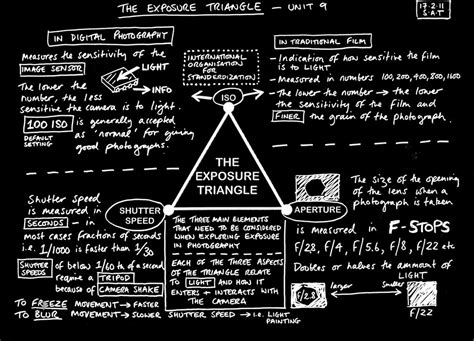 THE EXPOSURE TRIANGLE - UNIT 9
17.2.11
S.A.T
IN DIGITAL PHOTOGRAPHY
Measures the sensitivity of the
IMAGE SENSOR
LIGHT
INFO
The lower the
number, the less
sensitive the camera is to light.
100 ISO is generally accepted
DEFAULT
SETTING
as 'normal' for giving
good photographs.
INTERNATIONAL
ORGANISATION
FOR
STANDARDIZATION
ISO
IN TRADITIONAL FILM
- Indication of how sensitive the film
is to LIGHT
- Measured in numbers 100, 200, 400, 800, 1600
- The lower the number → the lower
the sensitivity of the film and
FINER the grain of the photograph.
THE
EXPOSURE
TRIANGLE
SHUTTER
SPEED
APERTURE
Shutter speed
is measured in
SECONDS - in
most cases fractions of seconds
i.e. 1/1000 is faster than 1/30
SHUTTER
SPEEDS
of below 1/60 th of a second
require a TRIPOD
because of CAMERA SHAKE
TO FREEZE MOVEMENT → FASTER
TO BLUR MOVEMENT → SLOWER SHUTTER SPEED → i.e. LIGHT
PAINTING
THE THREE MAIN ELEMENTS
THAT NEED TO BE CONSIDERED
WHEN EXPLORING EXPOSURE
IN PHOTOGRAPHY
EACH OF THE THREE ASPECTS
OF THE TRIANGLE RELATE
TO LIGHT AND HOW IT
ENTERS + INTERACTS WITH
THE CAMERA
The size of the opening
of the lens when a
photograph is taken
is measured in F-STOPS
f/2.8, f/4, f/5.6, f/8, f/22 etc
Doubles or halves the amount of
LIGHT
f/2.8
larger
smaller
f/22